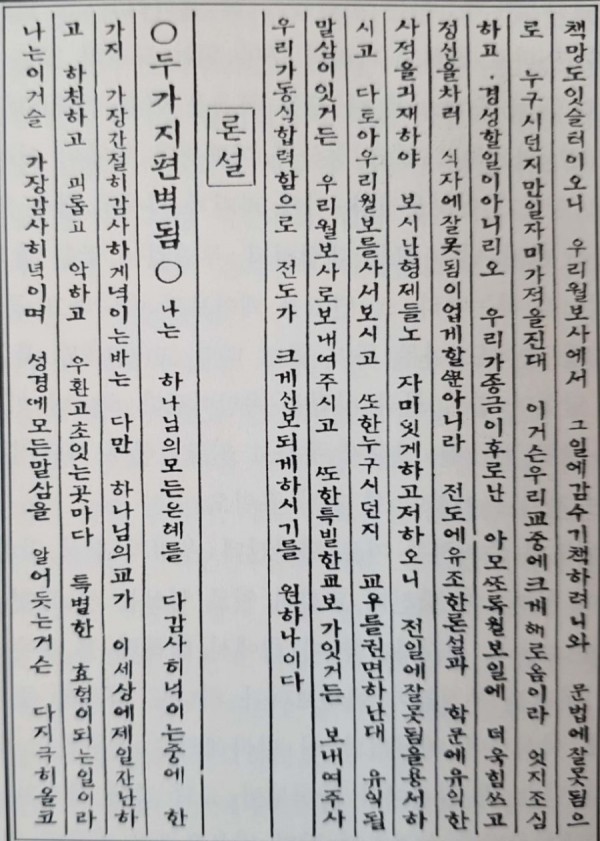 책망도잇슬터이오니 우리월보사에서 그일에감수기책하려니와 문법에잘못됨으
로 누구시던지만일자미가적을진대 이거슨우리교중에크게해로옴이라 엇지조심
하고 경성할일이아니리오 우리가종금이후로난 아모ᄯᅩ록월보일에 더욱힘쓰고
정신을차려 식자에잘못됨이업게할ᄲᅮᆫ아니라 전도에유조한론설과 학문에유익한
사적을긔재하야 보시난형제들노 자미잇게하고저하오니 전일에잘못됨을용서하
시고 다토아우리월보를사서보시고 ᄯᅩ한누구시던지 교우를권면하난대 유익될
말삼이잇거든 우리월보사로보내여주시고 ᄯᅩ한특별한교보가잇거든 보내여주사
우리가동심합력함으로 전도가 크게진보되게하시기를 원하나이다
론셜
○두가지편벽됨○ 나는 하나님의모든은혜를 다감사히넉이는중에 한
가지 가장간절히감사하게넉이는바는 다만 하나님의교가 이세상에제일잔난하
고 하천하고 괴롭고 악하고 우환고초잇는곳마다 특별한 효험이되는일이라
나는이거슬 가장감사히넉이며 성경에모든말삼을 알어듯는거슨 다지극히올코